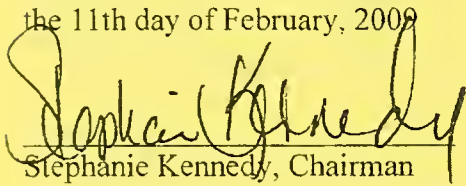 the 11th day of February, 2009
Stephanie Kennedy
Stephanie Kennedy, Chairman